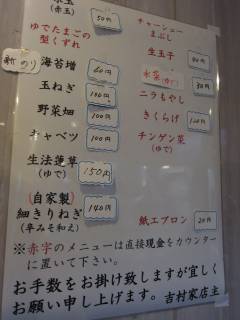 (赤玉)
50円
ゆでたまごの
型くずれ
のり
海苔増
60円
玉ねぎ
100円
野菜畑
100円
キャベツ
100円
生法蓮草
(ゆで)
150円
(自家製)
細きりねぎ
(辛みそ和え)
140円
チャーシュー
まぶし
生玉子
(ゆで)
ニラもやし
きくらげ
チンゲン菜
(ゆで)
紙エプロン
20円
※赤字のメニューは直接現金をカウンター
に置いて下さい。
お手数をお掛け致しますが宜しく
お願い申し上げます。吉村家店主